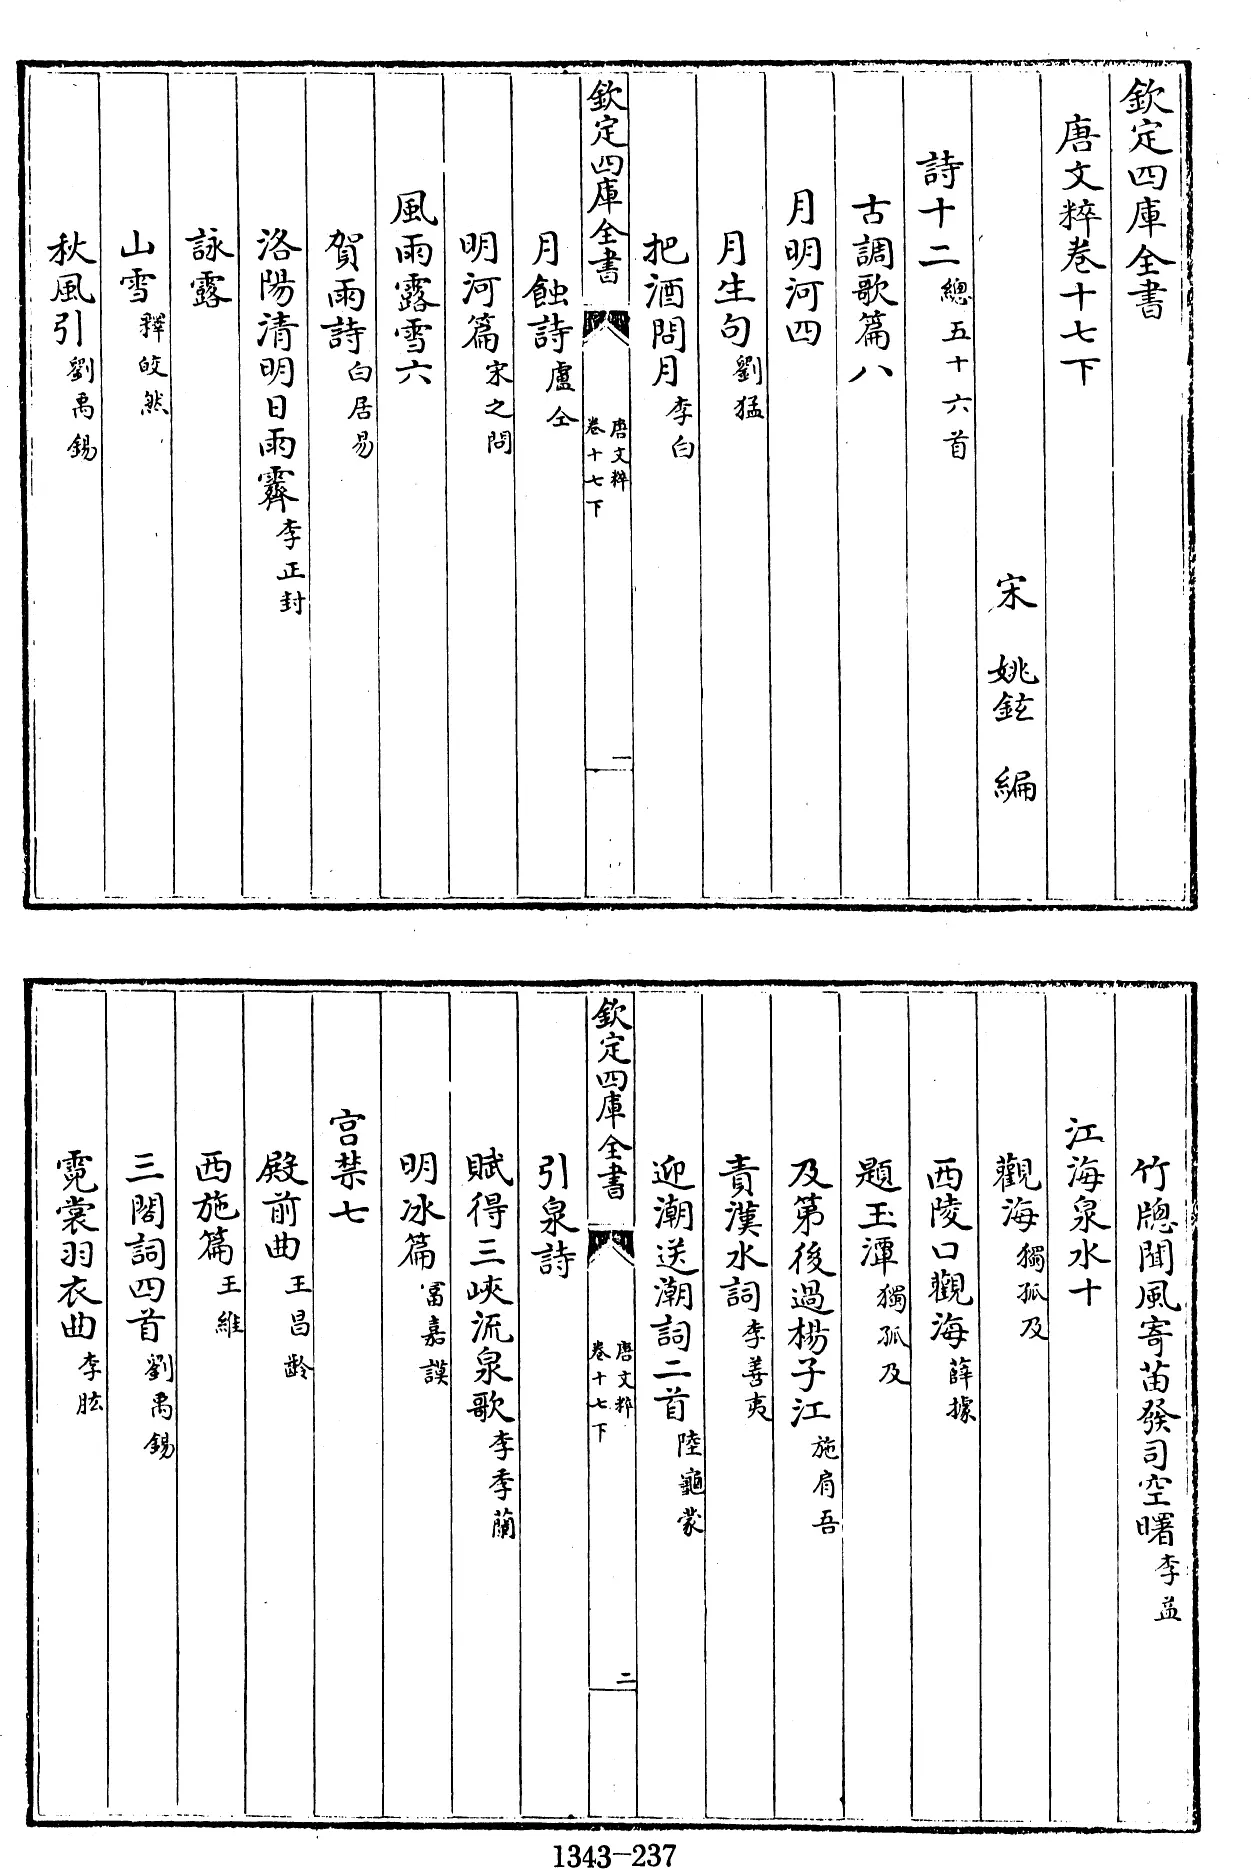 欽定四庫全書
唐文粹卷十七下
宋 姚鉉 編
詩十二 總五十六首
古調歌篇八
月明河四
月生句 劉猛
把酒問月 李白
欽定四庫全書 唐文粹 卷十七下 一
月蝕詩 盧仝
明河篇 宋之問
風雨露雪六
賀雨詩 白居易
洛陽清明日雨霽 李正封
詠露
山雪 釋皎然
秋風引 劉禹錫
竹牕聞風寄苗發司空曙 李益
江海泉水十
觀海 獨孤及
西陵口觀海 薛據
題玉潭 獨孤及
及第後過楊子江 施肩吾
責漢水詞 李善夷
迎潮送潮詞二首 陸龜蒙
欽定四庫全書 唐文粹 卷十七下 二
引泉詩
賦得三峽流泉歌 李季蘭
明冰篇 富嘉謨
宫禁七
殿前曲 王昌齡
西施篇 王維
三閣詞四首 劉禹錫
霓裳羽衣曲 李肱
1343-237